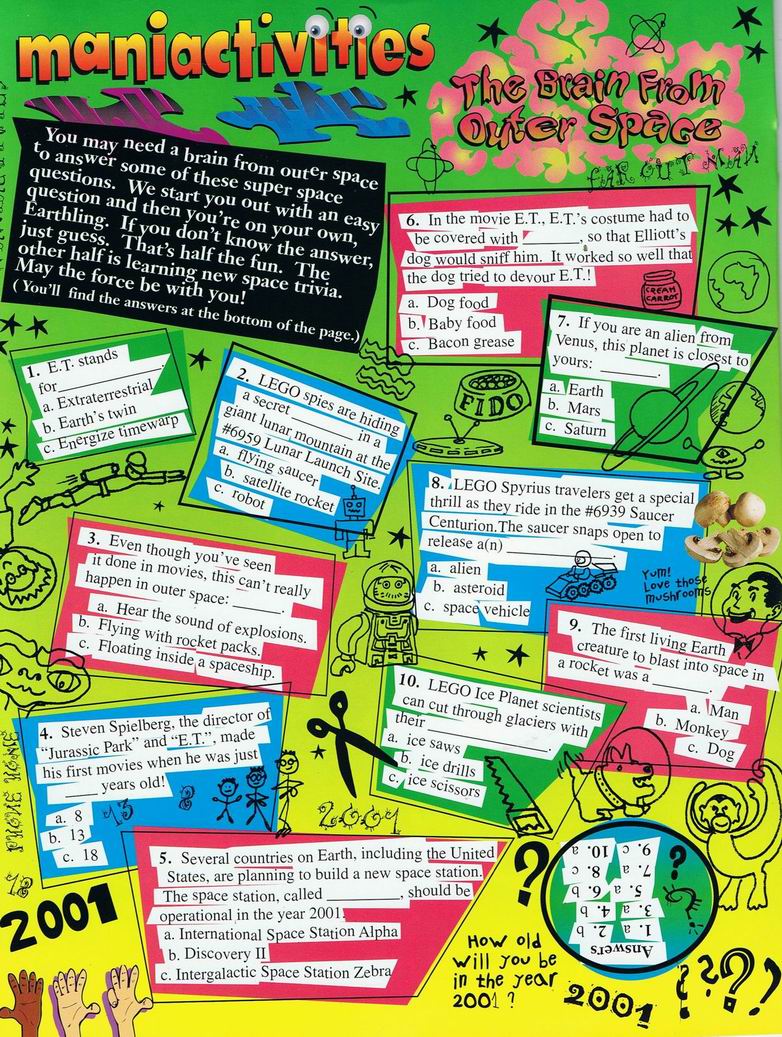 maniactivities
The Brain From
Outer Space
FAR OUT MAN
You may need a brain from outer space
to answer some of these super space
questions. We start you out with an easy
question and then you're on your own,
Earthling. If you don't know the answer,
just guess. That's half the fun. The
other half is learning new space trivia.
May the force be with you!
(You'll find the answers at the bottom of the page.)
1. E.T. stands
for________.
a. Extraterrestrial
b. Earth's twin
c. Energize timewarp
2. LEGO spies are hiding
a secret ______ in a
giant lunar mountain at the
#6959 Lunar Launch Site.
a. flying saucer
b. satellite rocket
c. robot
3. Even though you've seen
it done in movies, this can't really
happen in outer space: ______.
a. Hear the sound of explosions.
b. Flying with rocket packs.
c. Floating inside a spaceship.
4. Steven Spielberg, the director of
"Jurassic Park" and "E.T.", made
his first movies when he was just
____ years old!
a. 8
b. 13
c. 18
13
8
PHONE HOME
18
2001
5. Several countries on Earth, including the United
States, are planning to build a new space station.
The space station, called ________, should be
operational in the year 2001.
a. International Space Station Alpha
b. Discovery II
c. Intergalactic Space Station Zebra
2001
6. In the movie E.T., E.T.'s costume had to
be covered with _______, so that Elliott's
dog would sniff him. It worked so well that
the dog tried to devour E.T.!
a. Dog food
b. Baby food
c. Bacon grease
CREAM
CARROT
7. If you are an alien from
Venus, this planet is closest to
yours: _______
a. Earth
b. Mars
c. Saturn
FIDO
8. LEGO Spyrius travelers get a special
thrill as they ride in the #6939 Saucer
Centurion.The saucer snaps open to
release a(n) _______________
a. alien
b. asteroid
c. space vehicle
Yum!
Love those
mushrooms
9. The first living Earth
creature to blast into space in
a rocket was a _______.
a. Man
b. Monkey
c. Dog
10. LEGO Ice Planet scientists
can cut through glaciers with
their ______________.
a. ice saws
b. ice drills
c. ice scissors
Answers
1. a 2. b
3. a 4. b
5. a 6. b
7. a 8. c
9. c 10. a
?
?
How old
will you be
in the year
2001?
2001
¿??)